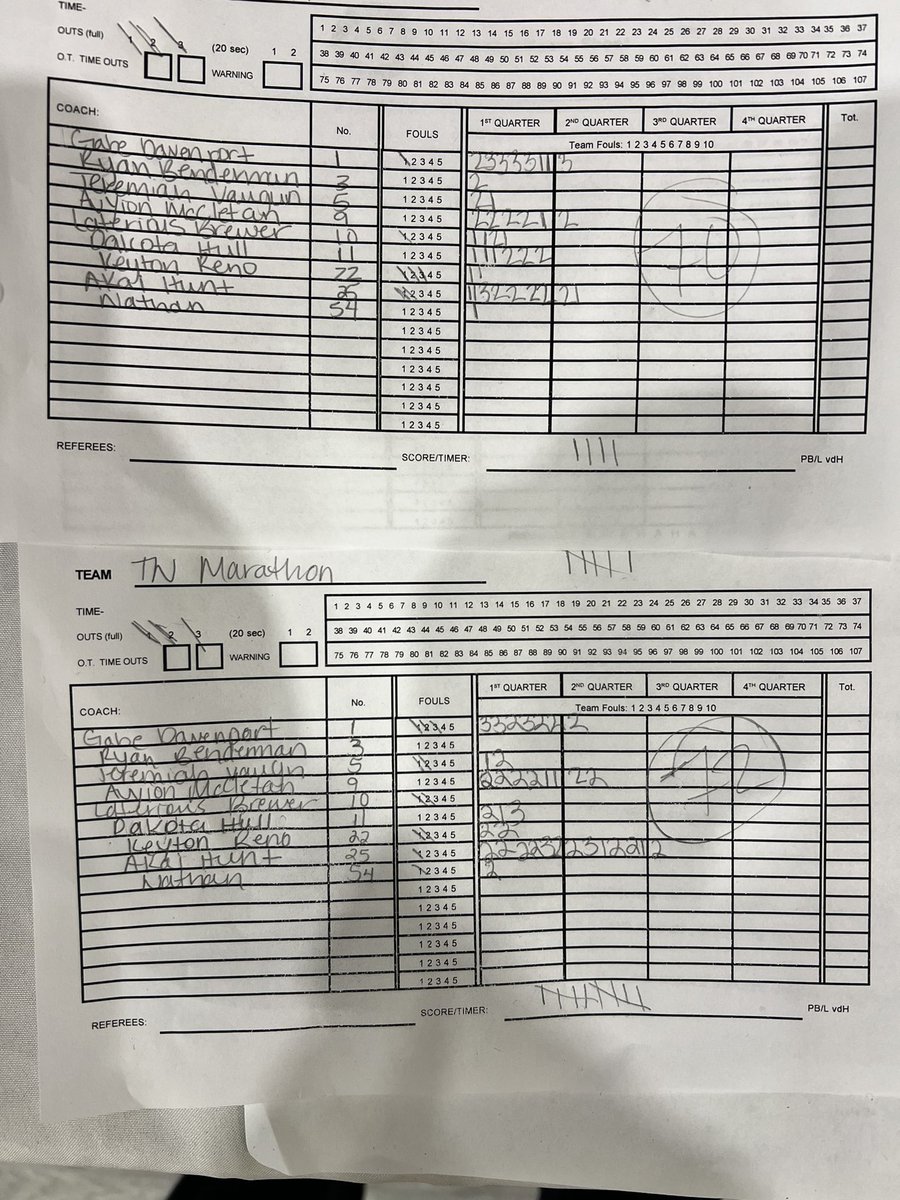 TIME-
OUTS (full) 1 2 3 (20 sec) 1 2
O.T. TIME OUTS WARNING
1 2 3 4 5 6 7 8 9 10 11 12 13 14 15 16 17 18 19 20 21 22 23 24 25 26 27 28 29 30 31 32 33 34 35 36 37
38 39 40 41 42 43 44 45 46 47 48 49 50 51 52 53 54 55 56 57 58 59 60 61 62 63 64 65 66 67 68 69 70 71 72 73 74
75 76 77 78 79 80 81 82 83 84 85 86 87 88 89 90 91 92 93 94 95 96 97 98 99 100 101 102 103 104 105 106 107
COACH: No. FOULS 1ST QUARTER 2ND QUARTER 3RD QUARTER 4TH QUARTER Tot.
Team Fouls: 1 2 3 4 5 6 7 8 9 10
Gabe Davenport 1 1 2 3 4 5
Ryan Benderman 3 1 2 3 4 5 2
Jeremiah Vaugun 5 1 2 3 4 5 21
Avion McCletan 9 1 2 3 4 5 222221 2
Laterious Brewer 10 1 2 3 4 5
Dakota Hull 11 1 2 3 4 5 111222
Keyton Reno 22 1 2 3 4 5 11
Akai Hunt 25 1 2 3 4 5 1132222 21
Nathan 54 1 2 3 4 5 1
1 2 3 4 5
1 2 3 4 5
1 2 3 4 5
1 2 3 4 5
1 2 3 4 5
1 2 3 4 5
REFEREES: SCORE/TIMER: PB/L vdH
TEAM TN Marathon
TIME-
OUTS (full) 1 2 3 (20 sec) 1 2
O.T. TIME OUTS WARNING
1 2 3 4 5 6 7 8 9 10 11 12 13 14 15 16 17 18 19 20 21 22 23 24 25 26 27 28 29 30 31 32 33 34 35 36 37
38 39 40 41 42 43 44 45 46 47 48 49 50 51 52 53 54 55 56 57 58 59 60 61 62 63 64 65 66 67 68 69 70 71 72 73 74
75 76 77 78 79 80 81 82 83 84 85 86 87 88 89 90 91 92 93 94 95 96 97 98 99 100 101 102 103 104 105 106 107
COACH: No. FOULS 1ST QUARTER 2ND QUARTER 3RD QUARTER 4TH QUARTER Tot.
Team Fouls: 1 2 3 4 5 6 7 8 9 10
Gabe Davenport 1 1 2 3 4 5
Ryan Benderman 3 1 2 3 4 5
Jeremiah Vaugn 5 1 2 3 4 5 12
Avion McCletan 9 1 2 3 4 5 222211 22
Laterious Brewer 10 1 2 3 4 5
Dakota Hull 11 1 2 3 4 5 213
Keyton Reno 22 1 2 3 4 5 22
Akai Hunt 25 1 2 3 4 5
Nathan 54 1 2 3 4 5 2
1 2 3 4 5
1 2 3 4 5
1 2 3 4 5
1 2 3 4 5
1 2 3 4 5
1 2 3 4 5
REFEREES: SCORE/TIMER: PB/L vdH